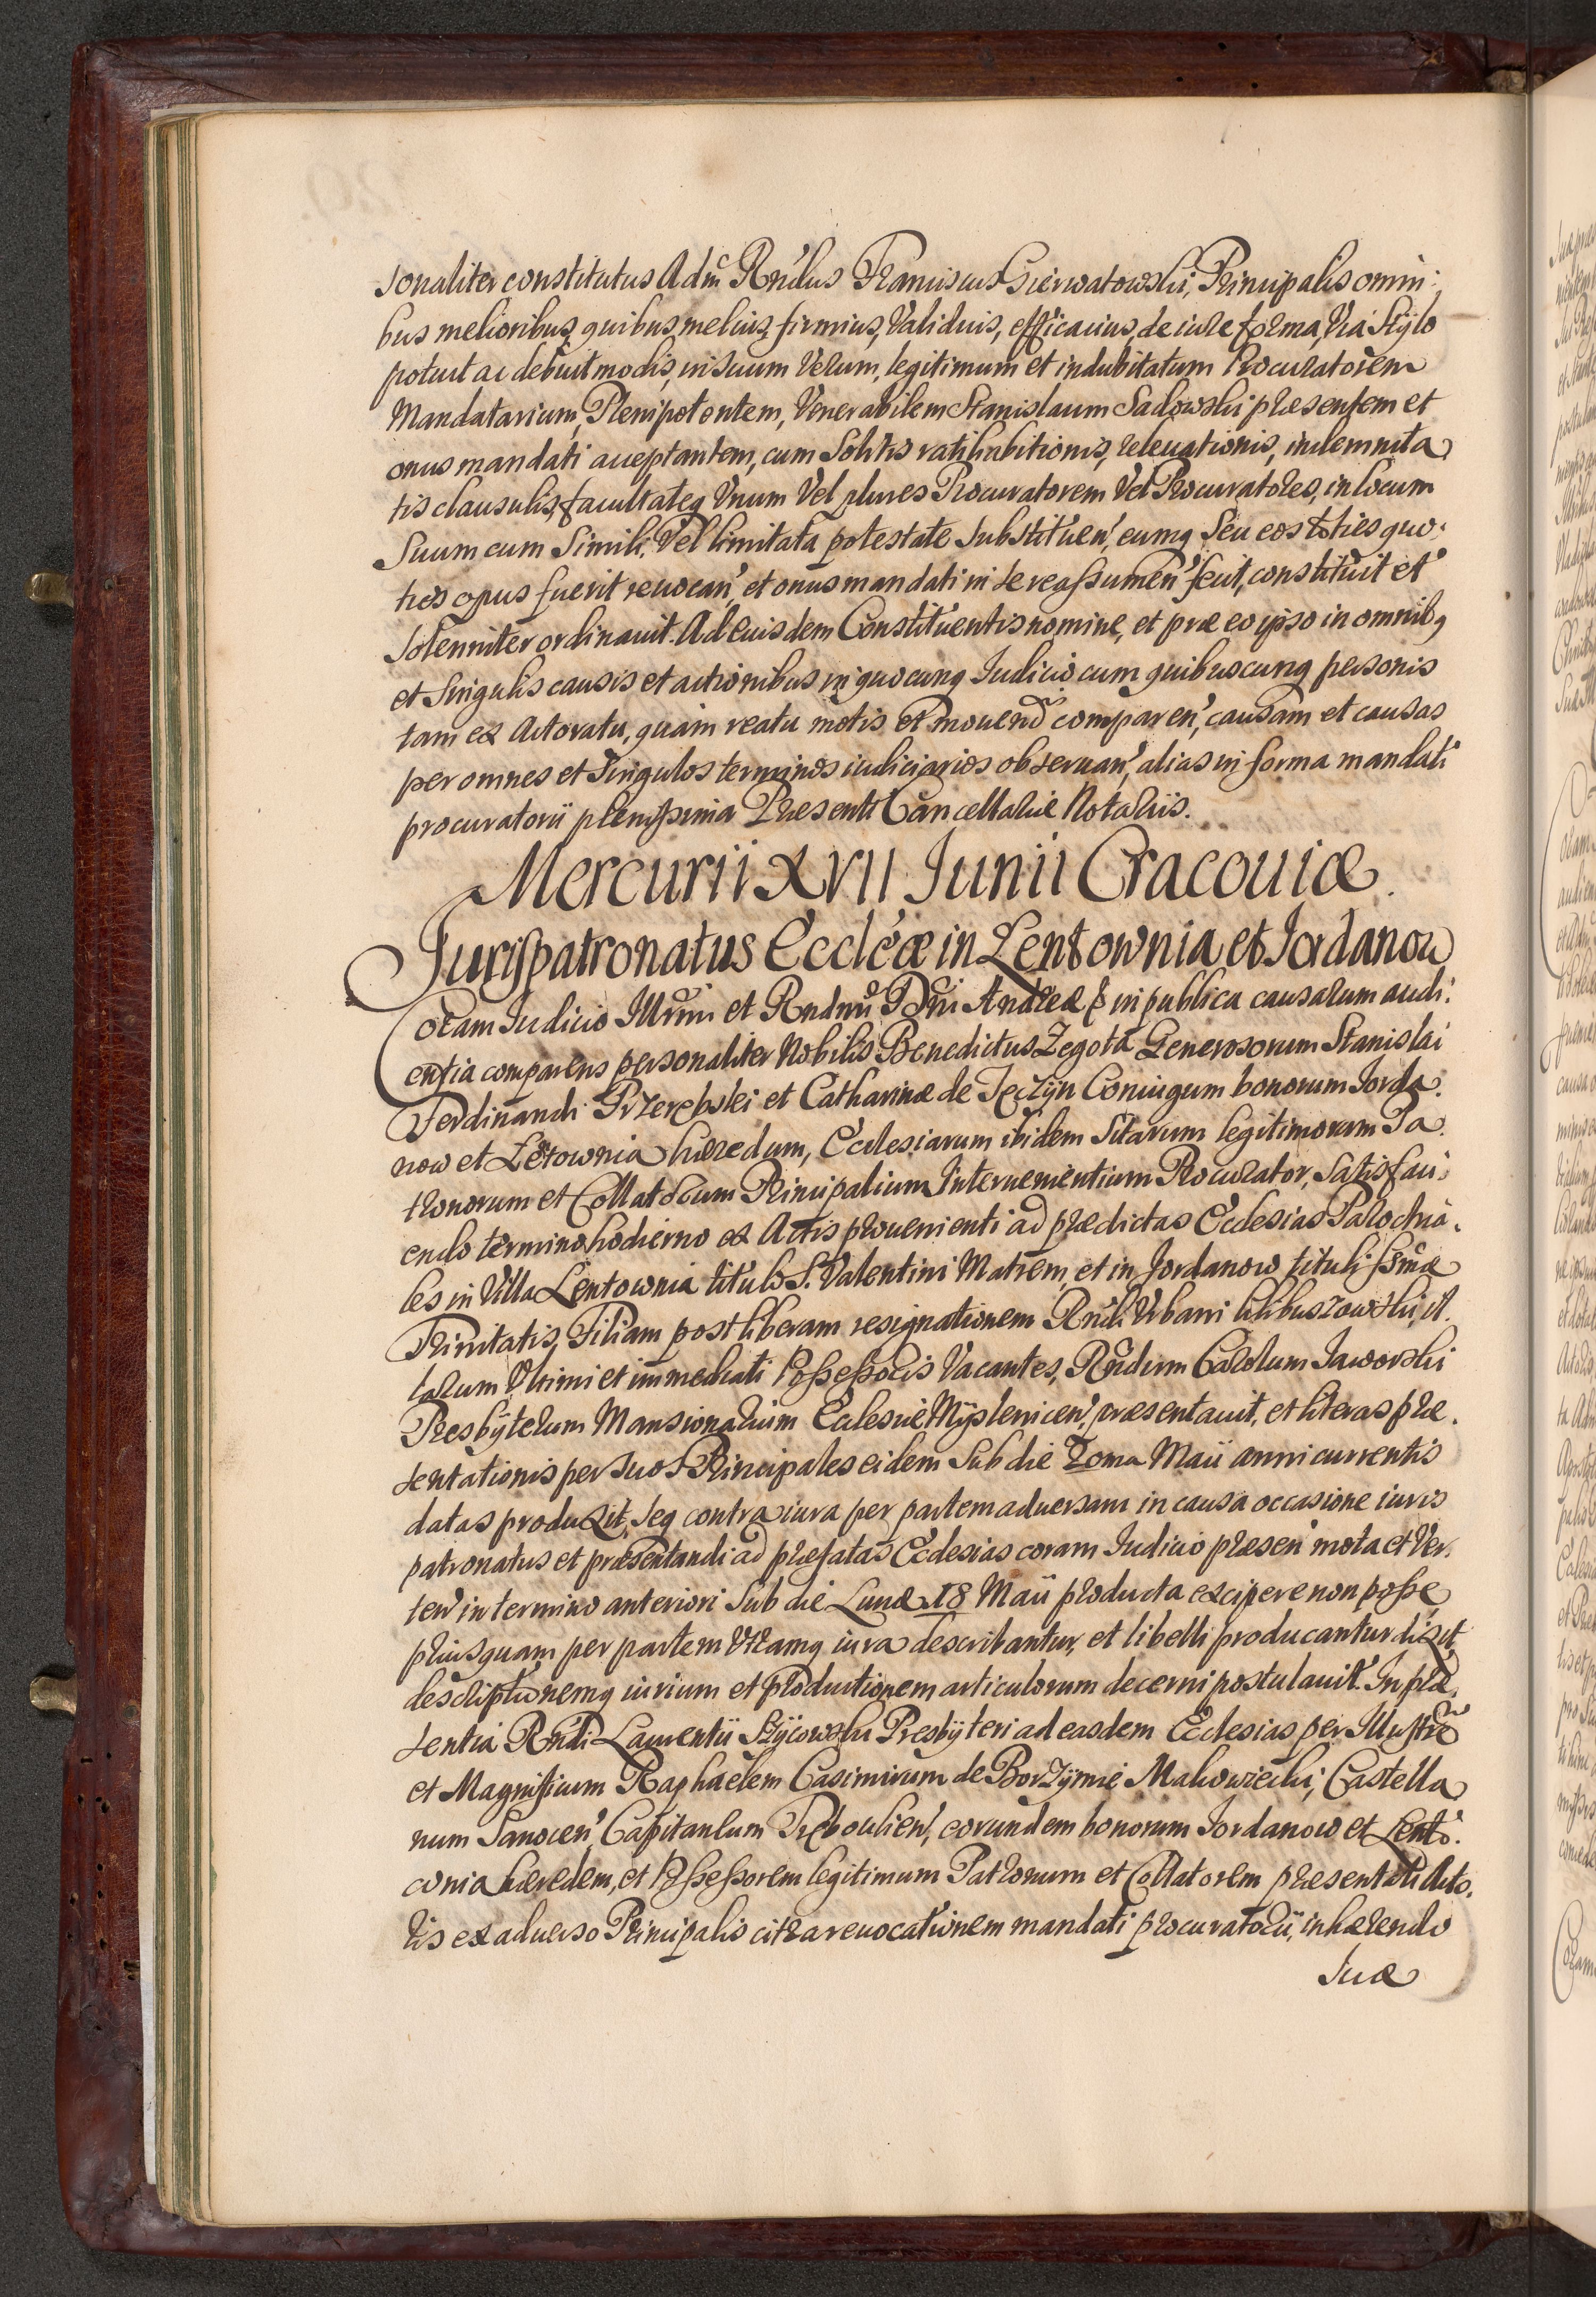 sonaliter constitutus Adm Rndus Franciscus Gierwatowski, Principalis omni:
bus melioribus, quibus melius, firmius, Validius, efficacius, de iure forma, Via Stÿlo
potuit ac debuit modis, in suum Verum, legitimum et indubitatum Procuratorem
Mandatarium, Plenipotentem, Venerabilem Stanislaum Sadowski præsentem et
onus mandati acceptantem, cum Solitis ratihabitionis, releuationis, indemnita
tis clausulis, facultateq Vnum Vel plures Procuratorem Vel Procuratores, in locum
Suum cum Simili, Vel limitata potestate Substituen', eumq Seu eos toties quo:
ties opus fuerit reuocan', et onus mandati in se reassumen' fecit, constituit et
Solenniter ordinauit. Ad euisdem Constituentis nomine, et præ eo ipso in omnibq
et Singulis causis et actionibus in quocunq Iudicio cum quibuscunq personis
tam ex Actoratu, quam reatu motis et mouendis comparen', causam et causas
per omnes et Singulos terminos iudiciarios obseruan', alias in forma mandati
procuratorii plenissima Præsenti Cancellariæ Notariis.
Mercurii XVII Iunii Cracouiæ.
Jurispatronatus Eccleæ in Lentownia et Iordanow
Coram Iudicio Illrmi et Rndmi Dni Andreæ & in publica causarum audi:
entia comparens personaliter Nobilis Benedictus Zegota Generosorum Stanislai
Ferdinandi Przerębski et Catharinæ de Tęczÿn Coniugum bonorum Iorda:
now et Lętownia hæredum, Ecclesiarum ibidem Sitarum legitimorum Pa:
tronorum et Collatorum Principalium Interuenientium Procurator, Satisfaci:
endo termino hodierno ex Actis prouenienti ad prædictas Ecclesias Parochia:
les in Villa Lentownia tituli S. Valentini Matrem, et in Jordanow tituli ssmæ
Trinitatis, Filiam post liberam resignationem Rndi Vrbani Klibuszowski, il:
larum Vltimi et immediati Possessoris Vacantes, Rndum Carolum Jaworski
Presbÿterum Mansionarium Ecclesiæ Mÿslenicen', præsentauit, et literas præ:
sentationis per suos Principales eidem Sub die 20ma Maii anni currentis
datas produxit, seq contra iura per partem aduersam in causa occasione iuris
patronatus et præsentandi ad præfatas Ecclesias coram Iudicio præsen' mota et Ver:
ten' in termino anteriori Sub die Lunæ 18 Maii producta excipere non posse,
priusquam per partem Vtramq iura describantur, et libelli producantur dixit,
descriptionemq iurium et productionem articulorum decerni postulauit. In præ:
sentia Rndi Laurentii Presbÿteri ad easdem Ecclesias per Illustrem
et Magnificum Raphaelem Casimirum de Borzÿmie Makowiecki, Castella
num Sanocen', Capitaneum Trębouliæn', eorundem bonorum Iordanow et Lento:
wnia hæredem, et Possessorem legitimum Patronum et Collatorem præsentati Acto:
ris ex aduerso Principalis citra reuocationem mandati procuratorii, inhærendo
Suæ